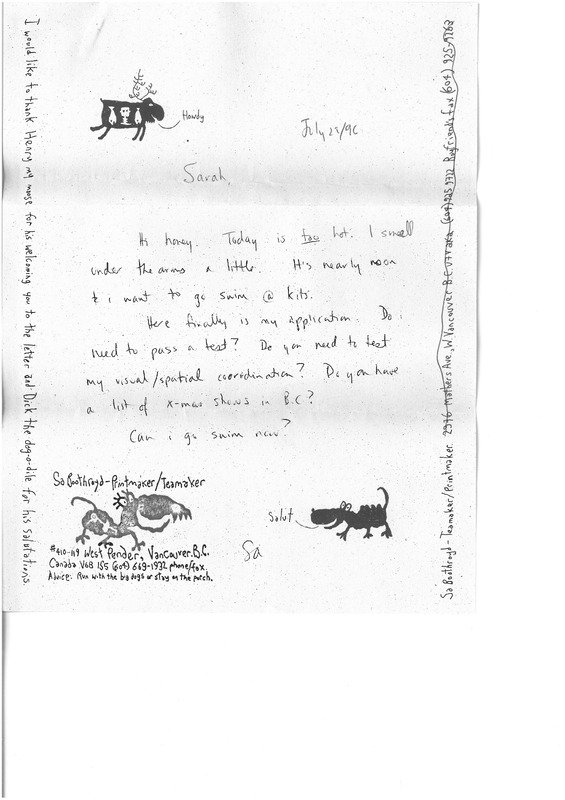 I would like to thank Henry my moose for his welcoming you to the letter and Dirk the dog-o-dile for his salutations
Howdy
July 25/96
Sarah,
Hi honey. Today is too hot. I smell
under the arms a little. It's nearly noon
& i want to go swim @ kits.
Here finally is my application. Do i
need to pass a test? Do you need to test
my visual/spatial coordination? Do you have
a list of x-mas shows in B.C?
Can i go swim now?
Sa Boothroyd-Printmaker/Teamaker
#410-119 West Pender, Vancouver. B.C.
Canada V6B 1S5 (604) 669-1932 phone/fax.
Advice: Run with the big dogs or stay on the porch.
Salut
Sa
Sa Boothroyd-Teamaker/Printmaker. 2976 Mathers Ave., W Vancouver B.C. (604) Boyfriends fax (604) 925-9262